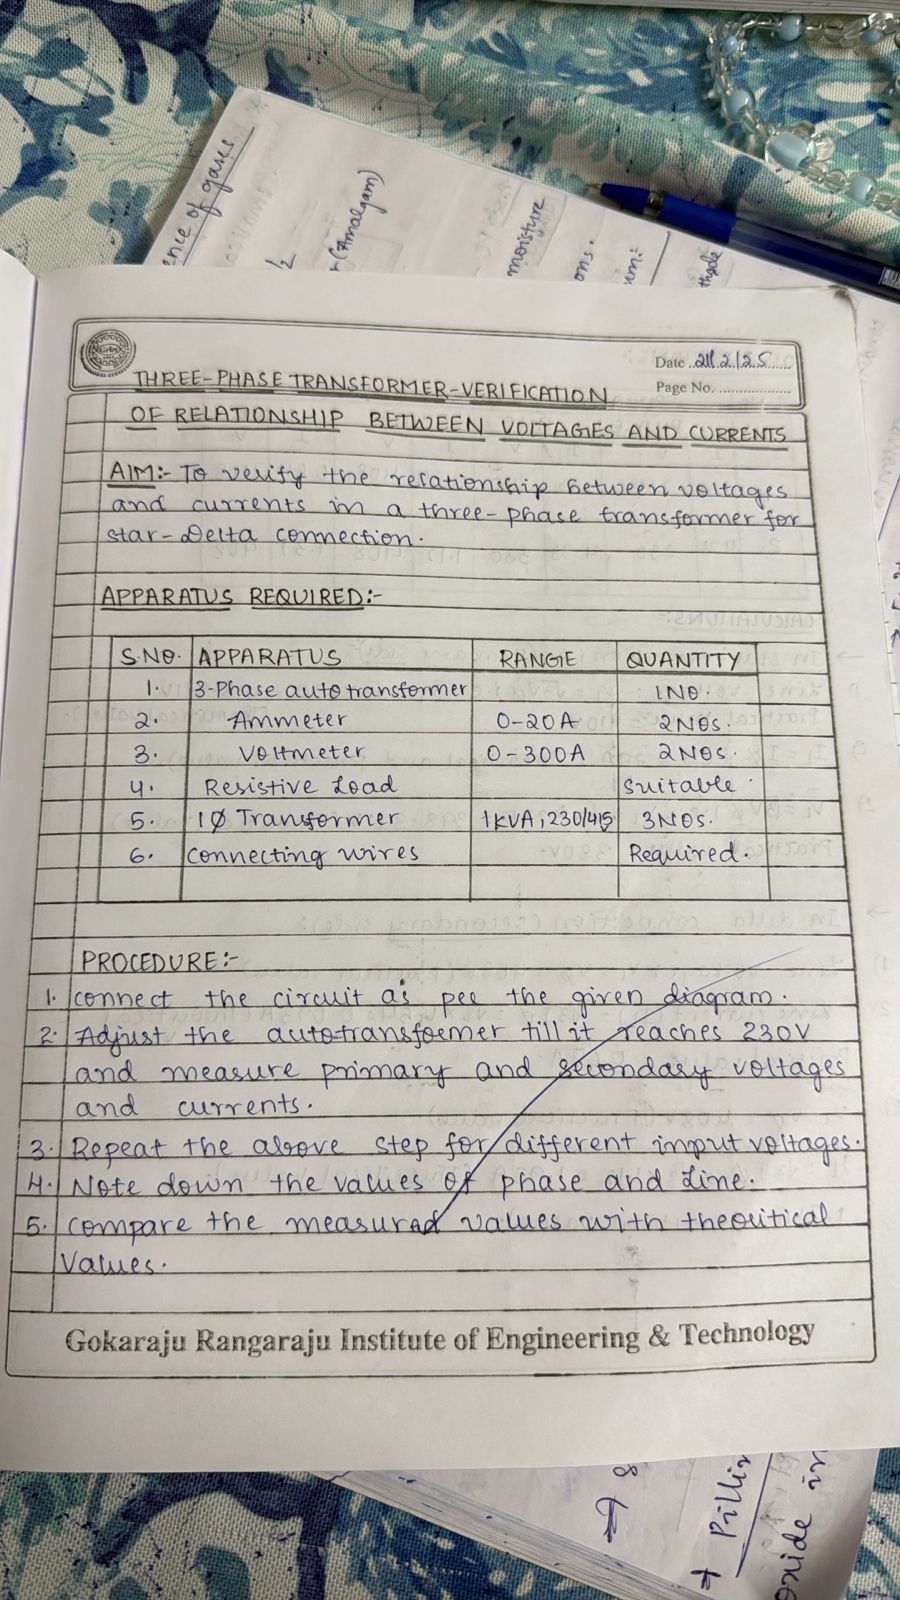 ence of gases
(Amalgam)
moisture
ons.
Date 21/2/25
Page No.
THREE-PHASE TRANSFORMER-VERIFICATION
OF RELATIONSHIP BETWEEN VOLTAGES AND CURRENTS
AIM:- To verify the relationship between voltages
and currents in a three-phase transformer for
star-Delta connection.
APPARATUS REQUIRED:-
S.NO. APPARATUS RANGE QUANTITY
1. 3-Phase auto transformer 1NO.
2. Ammeter 0-20A 2NOS.
3. Voltmeter 0-300A 2NOS.
4. Resistive Load Suitable
5. 1Ø Transformer 1KVA, 230/415 3NOS.
6. connecting wires Required.
PROCEDURE:-
1. connect the circuit as per the given diagram.
2. Adjust the autotransformer till it reaches 230V
and measure primary and secondary voltages
and currents.
3. Repeat the above step for different imput voltages.
4. Note down the values of phase and Line.
5. compare the measured values with theoritical
values.
Gokaraju Rangaraju Institute of Engineering & Technology
→ 8
→ Pillin
oxide in